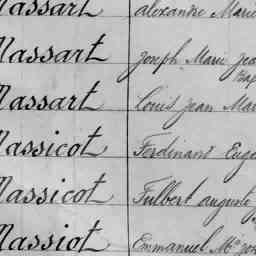 Massart alexandre Marie
Massart Joseph Marie Jea
Bap
Massart Louis Jean Mar
Massicot Ferdinand Euge
Massicot Fulbert auguste
Massiot Emmanuel Mie Jos